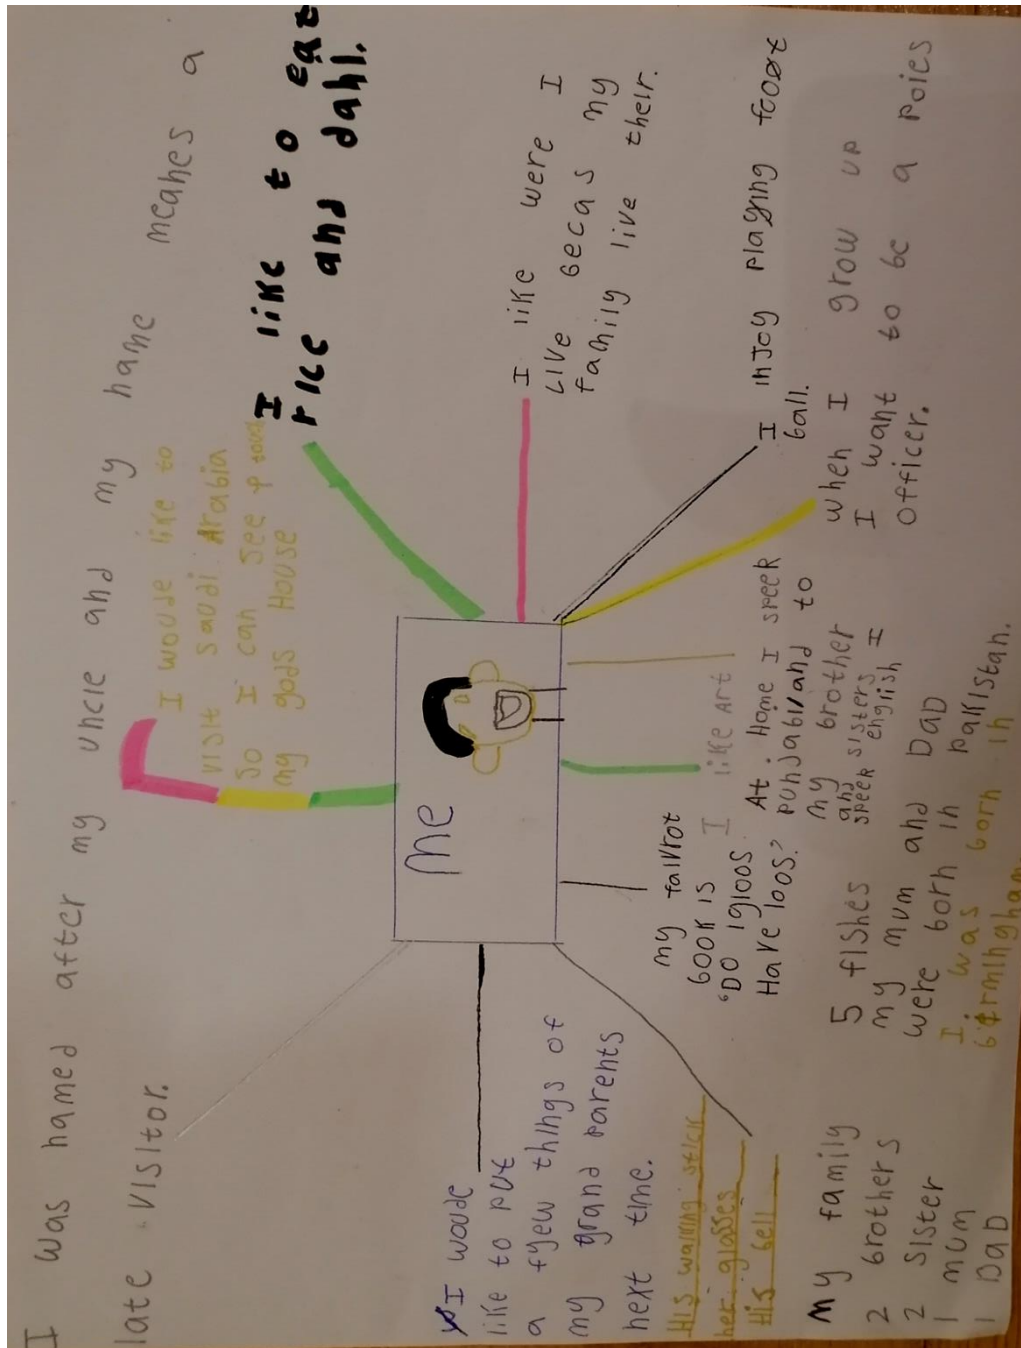 I was named after my uncle and my name meanes a
late visitor.
I woude like to
visit saudi Arabia
so I can see
my gods House
I like to eat
rice and dahl.
I like were I
Live becas my
family live their.
I injoy playing foot
ball.
when I grow up
I want to be a poies
officer.
Me
I like Art
At Home I speek
punjabi and to
my brother
and sisters I
speek english
my faivrot
book is
"DO igloos
Have loos?
I woude
like to put
a fyew things of
my grand parents
next time.
His walking stick
her glasses
His bell
My family
2 brothers
2 sister
1 mum
1 DaD
5 fishes
my mum and DaD
were born in pakistan.
I was born in
birmingham